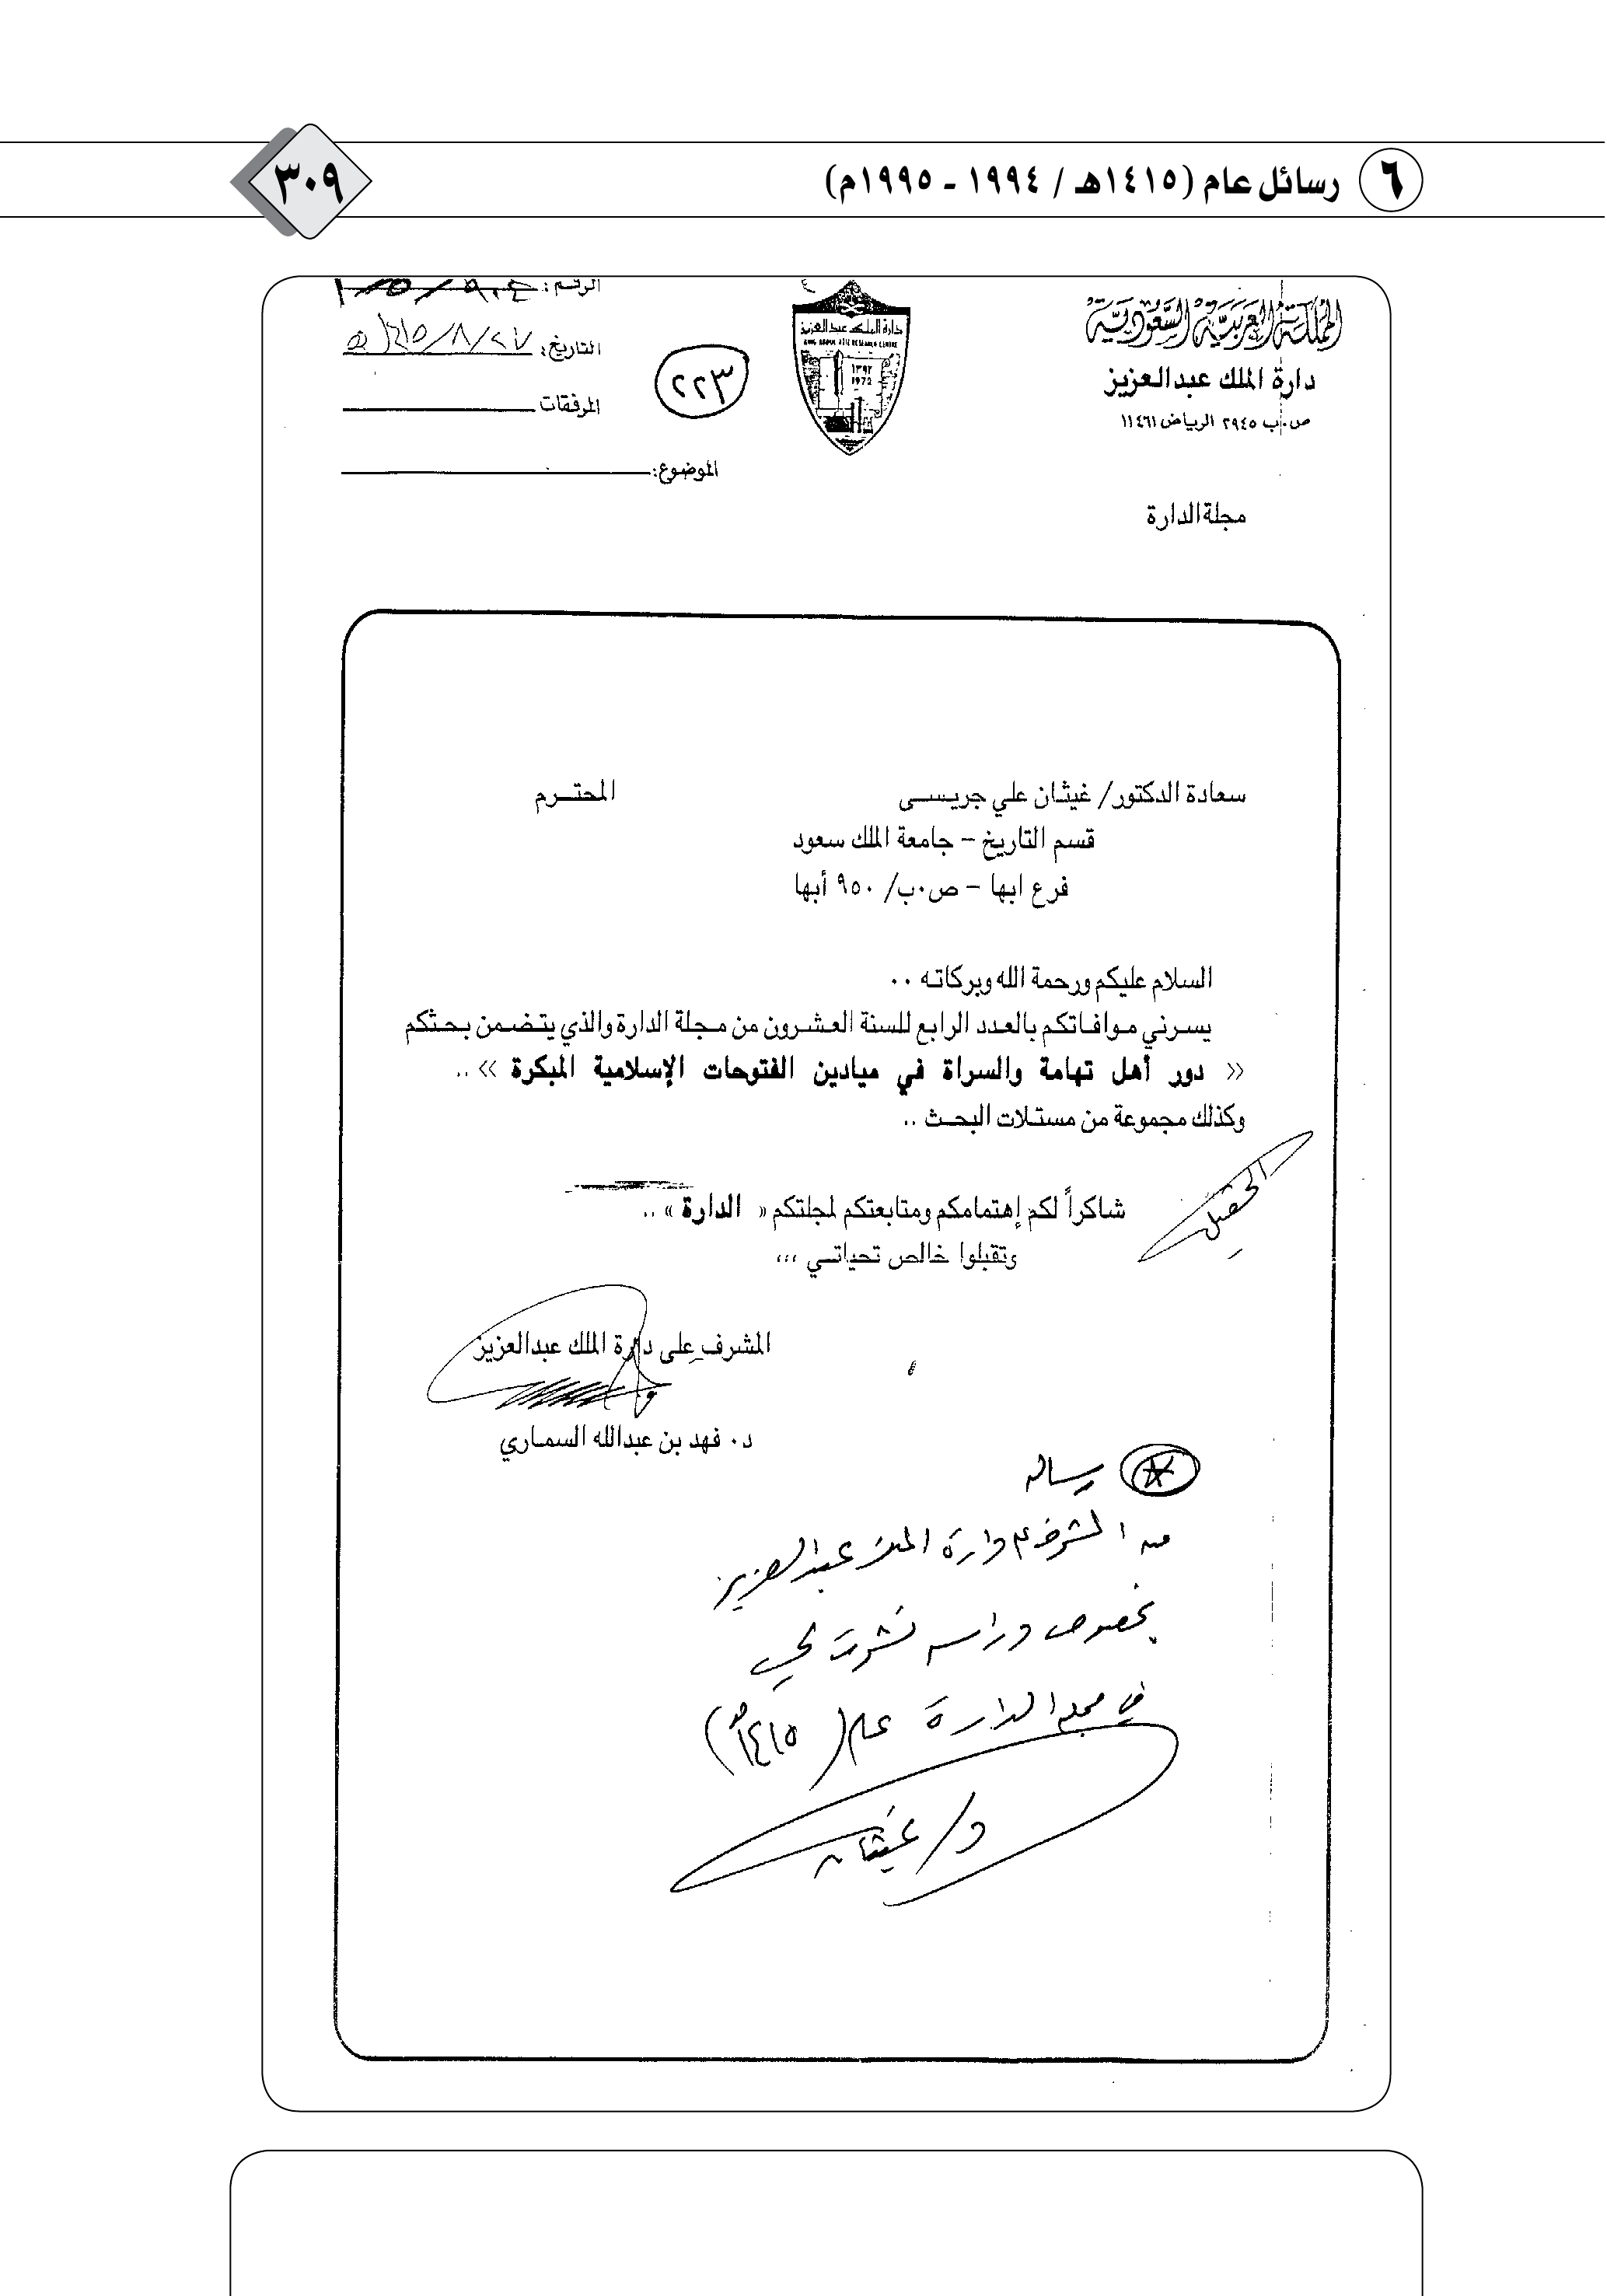 ٦ رسائل عام (١٤١٥هـ / ١٩٩٤ - ١٩٩٥م)
٣٠٩
المملكة العربية السعودية
دارة الملك عبدالعزيز
ص.ب ٢٩٤٥ الرياض ١١٤٦١
مجلة الدارة
دارة الملك عبدالعزيز
KING ABDUL AZIZ RESEARCH CENTRE
١٣٩٢
1972
٢٢٣
الرقم :
التاريخ : ١٤١٥/٨/٢٧هـ
المرفقات
الموضوع:
سعادة الدكتور/ غيثان علي جريسى المحترم
قسم التاريخ - جامعة الملك سعود
فرع ابها - ص.ب/ ٩٥٠ أبها
السلام عليكم ورحمة الله وبركاته ..
يسرني موافاتكم بالعدد الرابع للسنة العشرون من مجلة الدارة والذي يتضمن بحثكم
« دور أهل تهامة والسراة في ميادين الفتوحات الإسلامية المبكرة » ..
وكذلك مجموعة من مستلات البحث ..
شاكراً لكم إهتمامكم ومتابعتكم لمجلتكم « الدارة » ..
وتقبلوا خالص تحياتي ،،،
المشرف على دارة الملك عبدالعزيز
د. فهد بن عبدالله السماري
رساله
من المشرف على دارة الملك عبدالعزيز
بخصوص دراسه نشرت لي
في مجله الدارة عام (١٤١٥هـ)
د/ غيثان